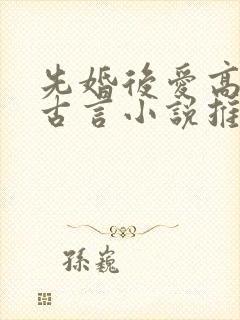 先婚後愛高
古言小說推
孫巍